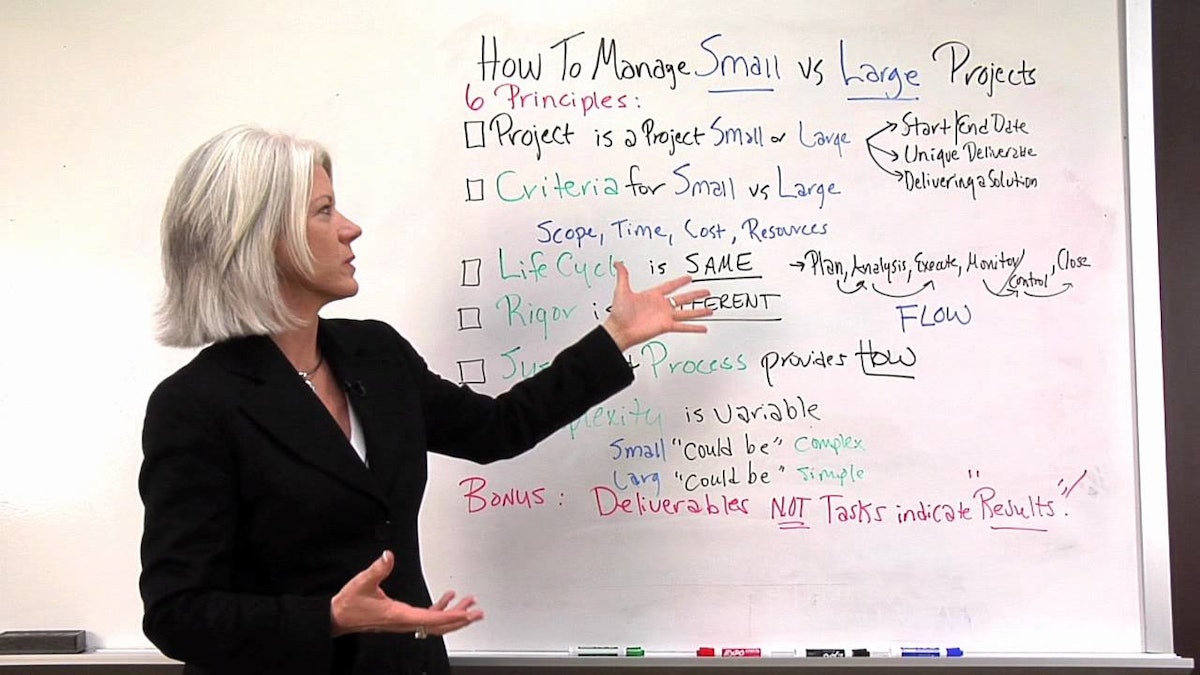 How To Manage Small vs Large Projects
6 Principles:
Project is a Project Small or Large
Start/End Date
Unique Deliverable
Delivering a Solution
Criteria for Small vs Large
Scope, Time, Cost, Resources
Life Cycl is SAME → Plan, Analysis, Execute, Monitor/Control, Close
Rigor is FFERENT
FLOW
Process provides How
plexity is variable
Small "Could be" Complex
Larg "Could be" Simple
Bonus: Deliverables NOT Tasks indicate "Results".
EXPO